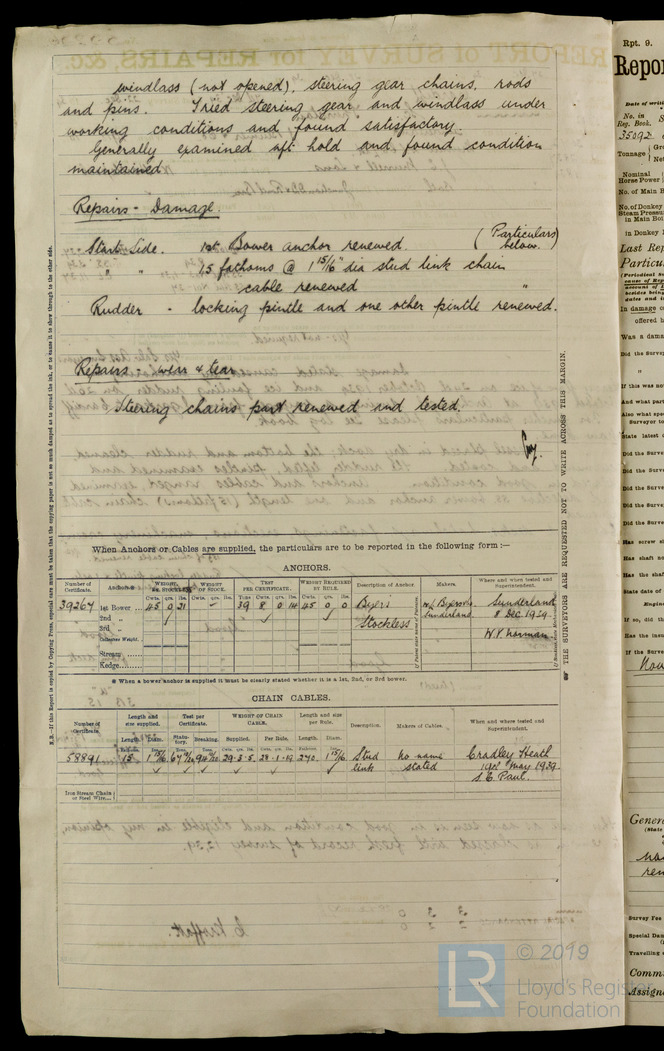 windlass (not opened), steering gear chains, rods
and pins. Tried steering gear and windlass under
working conditions and found satisfactory.
Generally examined aft hold and found condition
maintained
Repairs - Damage.
Starb. Side. 1st Bower anchor renewed. (Particulars below.)
" " 15 fathoms @ 1 15/16" dia stud link chain
cable renewed "
Rudder - locking pintle and one other pintle renewed.
Repairs - wear & tear
Steering chains part renewed and tested.
When Anchors or Cables are supplied, the particulars are to be reported in the following form :—
ANCHORS.
Number of Certificate. Anchors. WEIGHT, EX. STOCK. WEIGHT OF STOCK. TEST PER CERTIFICATE. WEIGHT REQUIRED BY RULE. Description of Anchor. Makers. Where and when tested and Superintendent.
Cwts. qrs. lbs. Cwts. qrs. lbs. Tons cwts. qrs. lbs. Cwts. qrs. lbs.
39267 1st Bower 45 0 21 — 39 8 0 14 45 0 0 Byers Stockless W.L. Byers & Co Sunderland Sunderland 8 Dec. 1939. W.P. Norman
2nd "
3rd "
Collective Weight.
Stream
Kedge
* When a bower anchor is supplied it must be clearly stated whether it is a 1st, 2nd, or 3rd bower.
CHAIN CABLES.
Number of Certificate. Length and size supplied. Test per Certificate. WEIGHT OF CHAIN CABLE. Length and size per Rule. Description. Makers of Cables. When and where tested and Superintendent.
Length. Diam. Statutory. Breaking. Supplied. Per Rule. Length. Diam.
58891 15 1 15/16 29-3-5 28-1-19 270 1 15/16 Stud link no name stated Cradley Heath 19th May 1939. S.C. Paul.
Iron Stream Chain or Steel Wire
N.B.—If this Report is copied by Copying Press, especial care must be taken that the copying paper is not so much damped as to spread the ink, or to cause it to show through to the other side.
THE SURVEYORS ARE REQUESTED NOT TO WRITE ACROSS THIS MARGIN.
Rpt. 9.
Repor
No. in
Reg. Book.
35092
Tonnage
Nominal
Horse Power
No. of Main B
No. of Donkey
Steam Pressure
in Main Boi
in Donkey
Last Rep
Particu
In damage
offered
Was a dama
Did the Surve
If this was no
And what part
Also what spe
Surveyor to
State latest
Did the Surve
Did the Surve
Did the Surve
Did the Surve
Has screw
Has shaft
Has the shaf
State date of
Engine
If so, did th
Has the
If the Surve
Now
Genera
(State
Survey Fee
Special Dam
Travelling
Comm
Assign
© 2019
LR
Lloyd's Register
Foundation